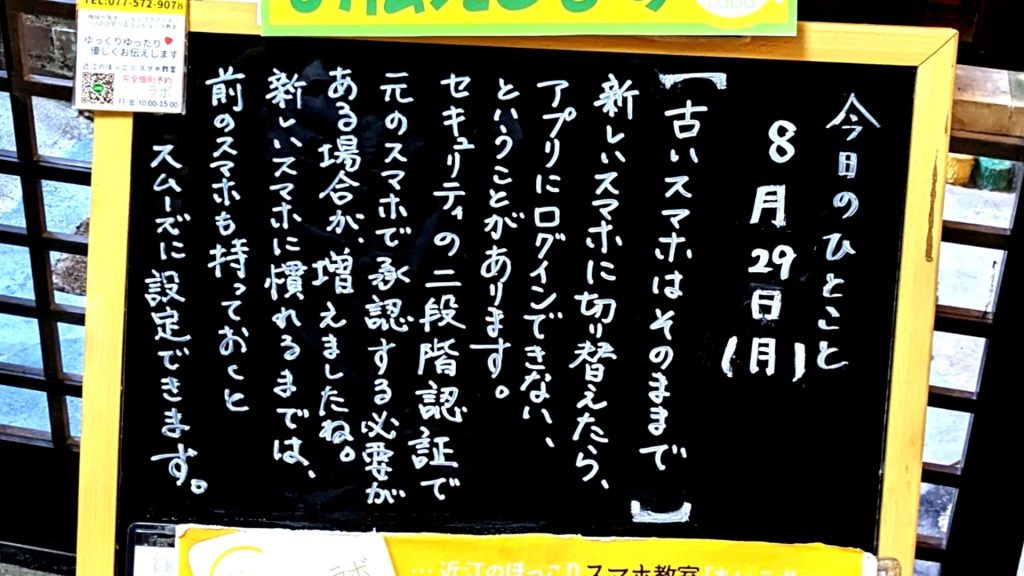 TEL:077-572-907
ゆっくりゆったり
優しくお伝えします
近江のほっこりスマホ教室
完全個別予約
ラボ
月-金 10:00-15:00
今日のひとこと
8月29日(月)
【古いスマホはそのままで】
新しいスマホに切り替えたら、
アプリにログインできない、
ということがあります。
セキュリティの二段階認証で
元のスマホで承認する必要が
ある場合が、増えましたね。
新しいスマホに慣れるまでは、
前のスマホも持っておくと
スムーズに設定できます。
ラボ
…近江のほっこりスマホ教室